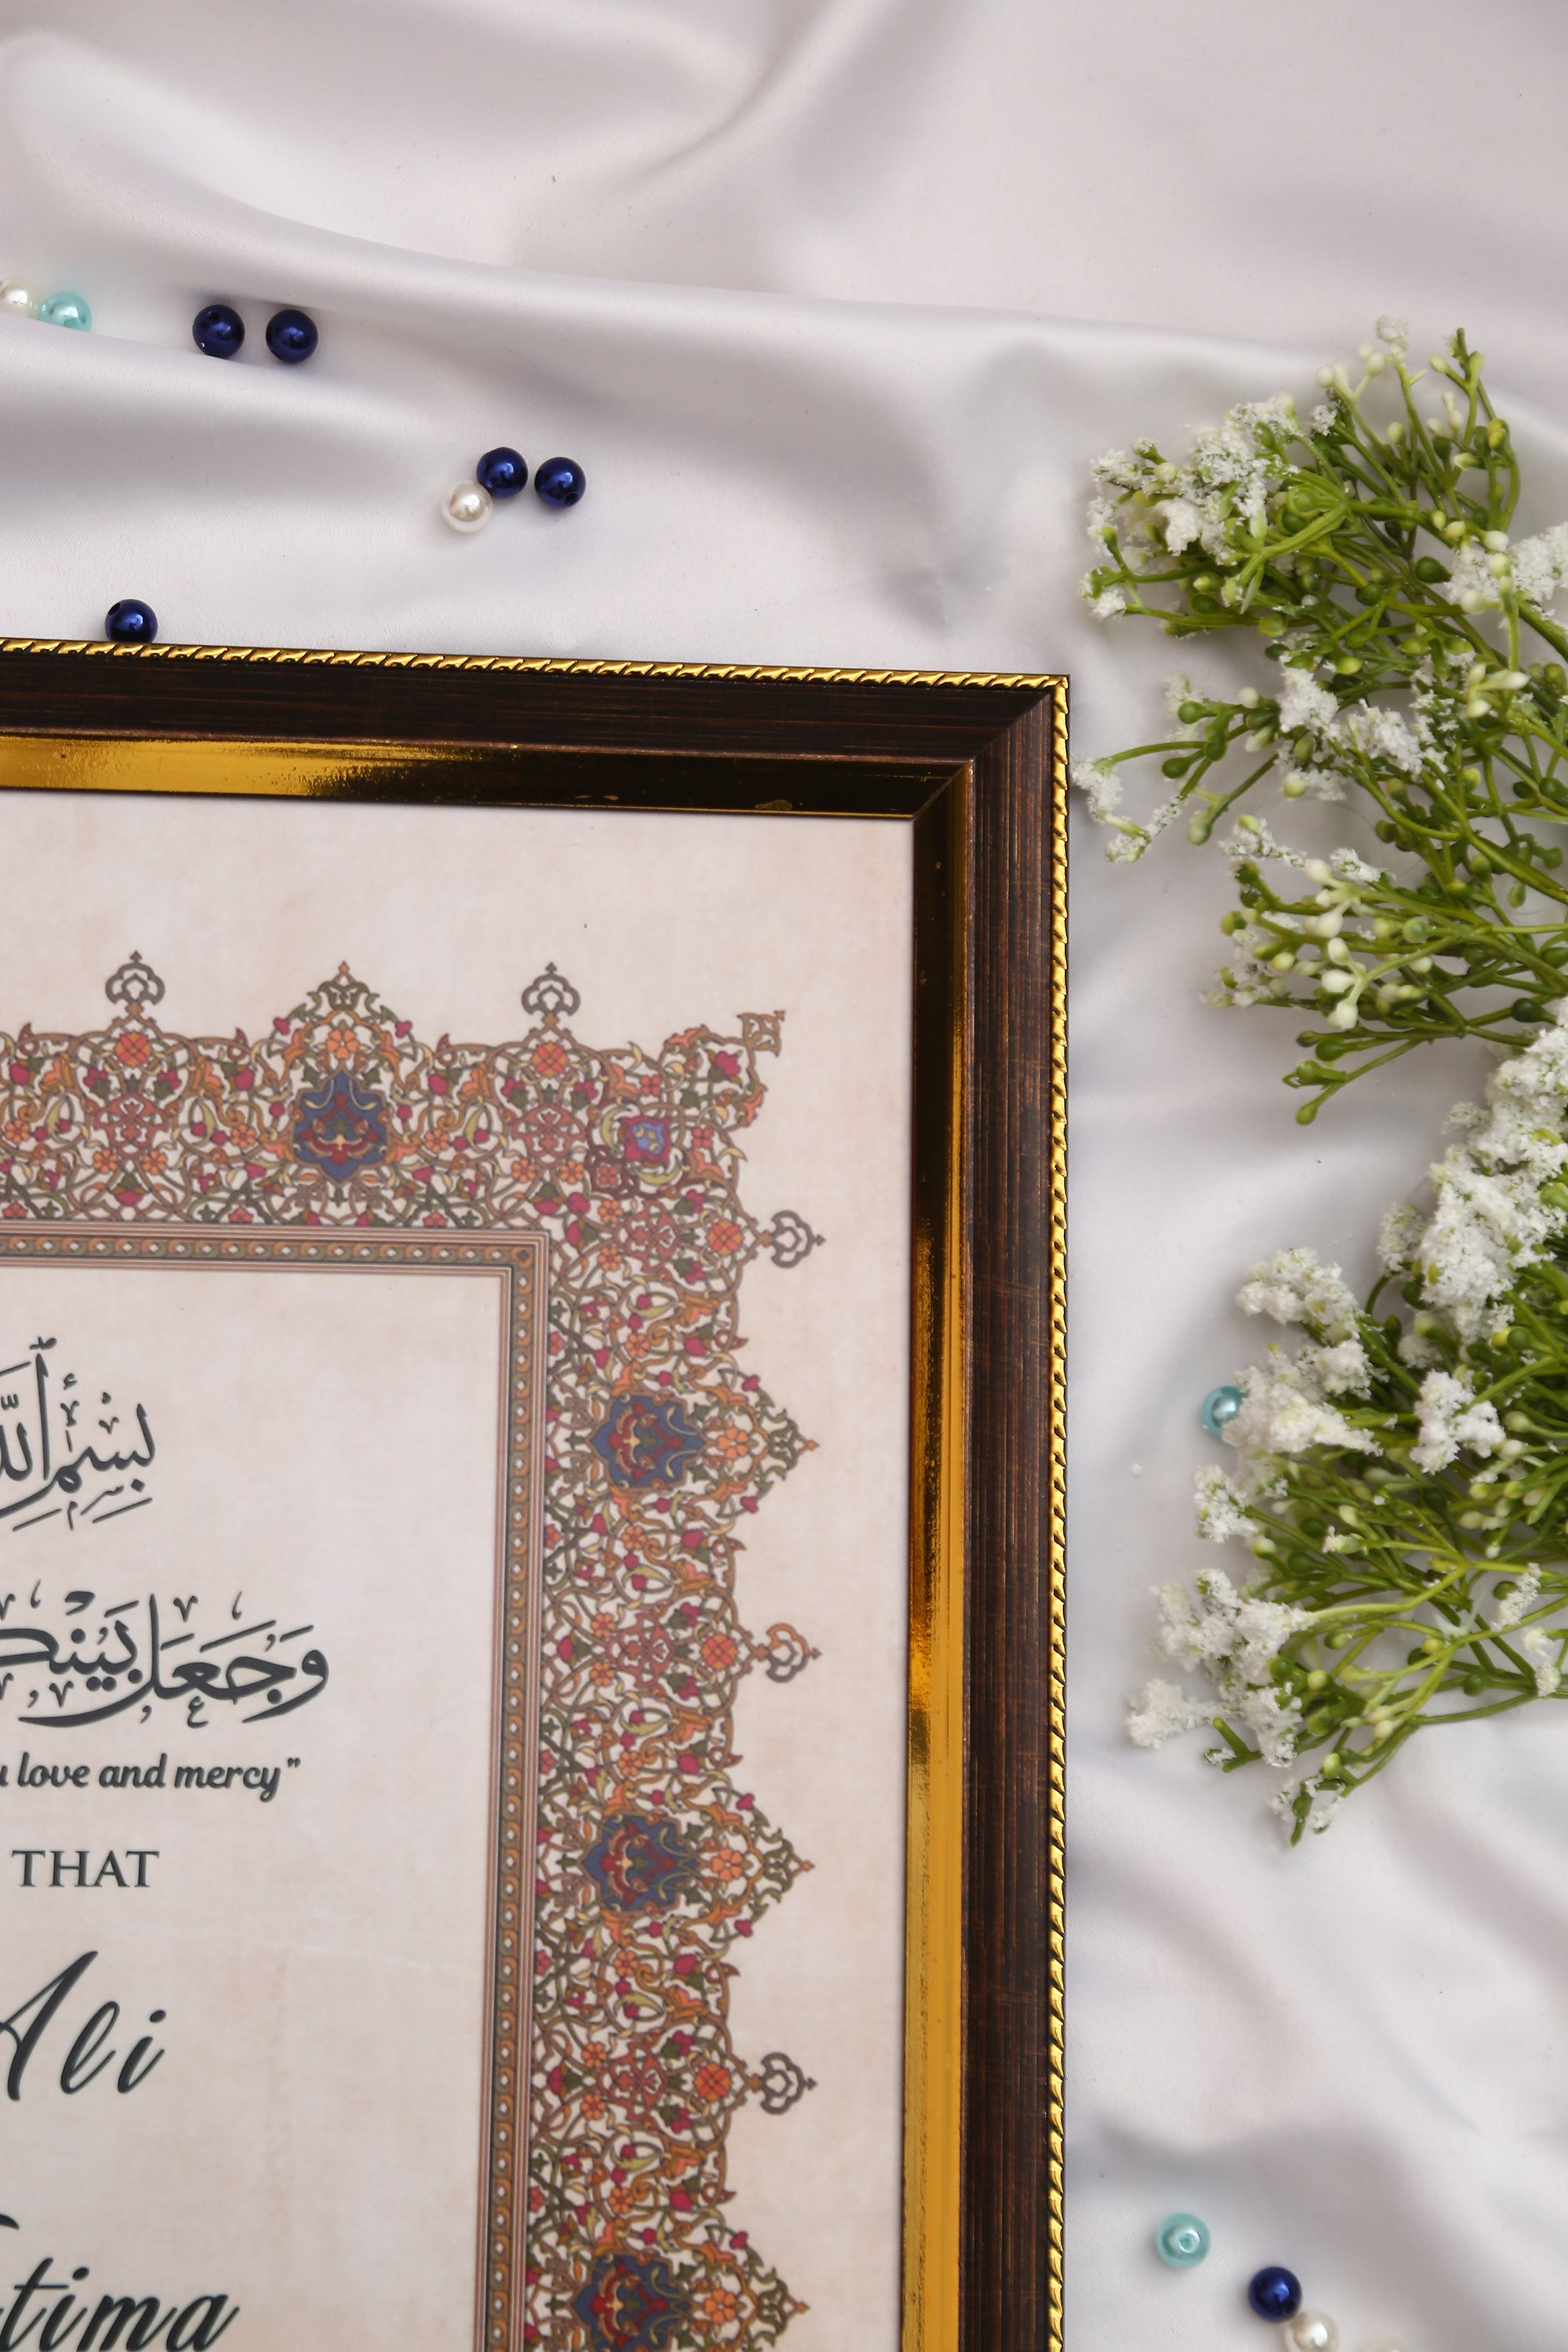 بِسْمِ اللَّه
وَجَعَلَ بَيْنَك
u love and mercy"
THAT
Ali
tima